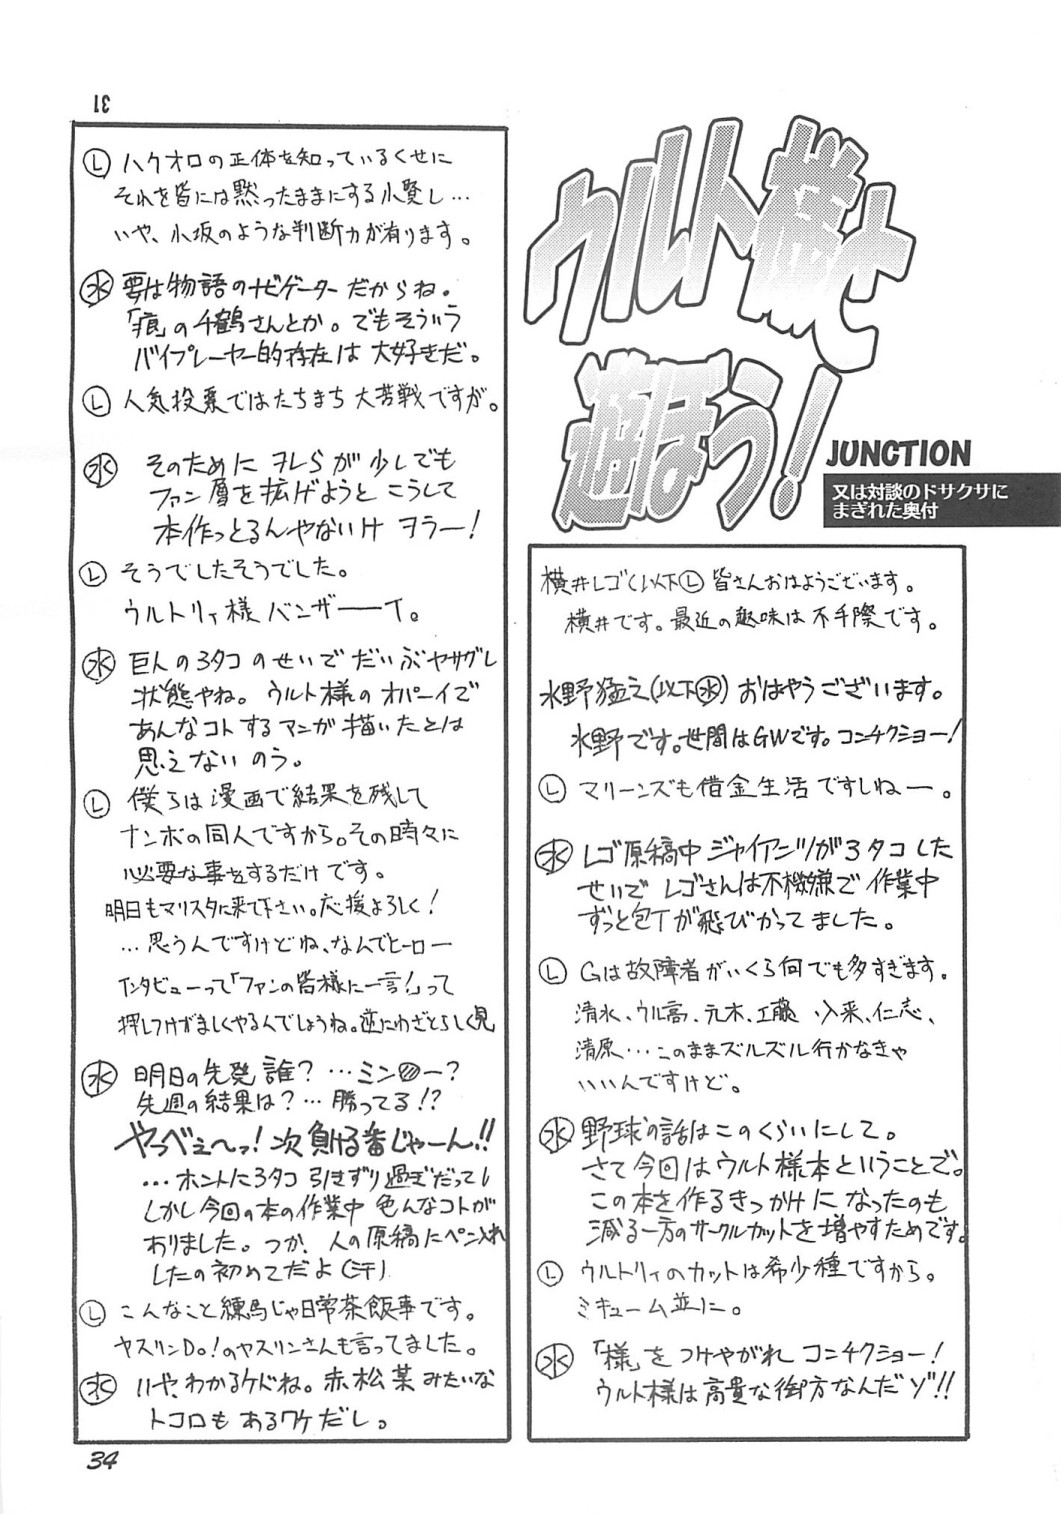 ウルト様と
遊ぼう!
JUNCTION
又は対談のドサクサに
まぎれた奥付
横井レゴ(以下Ⓛ 皆さんおはようございます。
横井です。最近の趣味は不手際です。
水野猛之(以下㊌) おはやうございます。
水野です。世間はGWです。コンチクショー!
Ⓛ マリーンズも借金生活ですしねー。
㊌ レゴ原稿中ジャイアンツが3タコした
せいでレゴさんは不機嫌で作業中
ずっと包丁が飛びかってました。
Ⓛ Gは故障者がいくら何でも多すぎます。
清水、ウル高、元木、工藤 入来、仁志、
清原…このままズルズル行かなきゃ
いいんですけど。
㊌ 野球の話はこのくらいにして。
さて今回はウルト様本ということで。
この本を作るきっかけになったのも
減る一方のサークルカットを増やすためです。
Ⓛ ウルトリィのカットは希少種ですから。
ミキューム並に。
㊌ 「様」をつけやがれコンチクショー!
ウルト様は高貴な御方なんだゾ!!
31
Ⓛ ハクオロの正体を知っているくせに
それを皆には黙ったままにする小賢し…
いや、小坂のような判断力が有ります。
㊌ 要は物語のナビゲーターだからね。
「痕」の千鶴さんとか。でもそういう
バイプレーヤー的存在は大好きだ。
Ⓛ 人気投票ではたちまち大苦戦ですが。
㊌ そのためにヲレらが少しでも
ファン層を拡げようとこうして
本作っとるんやないけヲラー!
Ⓛ そうでしたそうでした。
ウルトリィ様バンザーイ。
㊌ 巨人の3タコのせいでだいぶヤサグレ
状態やね。ウルト様のオパーイで
あんなコトするマンガ描いたとは
思えないのう。
Ⓛ 僕らは漫画で結果を残して
ナンボの同人ですから。その時々に
必要な事をするだけです。
明日もマリスタに来て下さい。応援よろしく!
…思うんですけどね、なんでヒーロー
インタビューって「ファンの皆様に一言!」って
押しつけがましくやるんでしょうね。逆にわざとらしく見
㊌ 明日の先発誰?…ミン◍ー?
先週の結果は?…勝ってる!?
やっべぇ〜っ!次負ける番じゃーん!!
…ホントに3タコ引きずり過ぎだってし
しかし今回の本の作業中色んなコトが
ありました。つか、人の原稿にペン入れ
したの初めてだよ(汗)
Ⓛ こんなこと練馬じゃ日常茶飯事です。
ヤスリンDo!のヤスリンさんも言ってました。
㊌ いや、わかるケドね。赤松菜みたいな
トコロもあるワケだし。
34